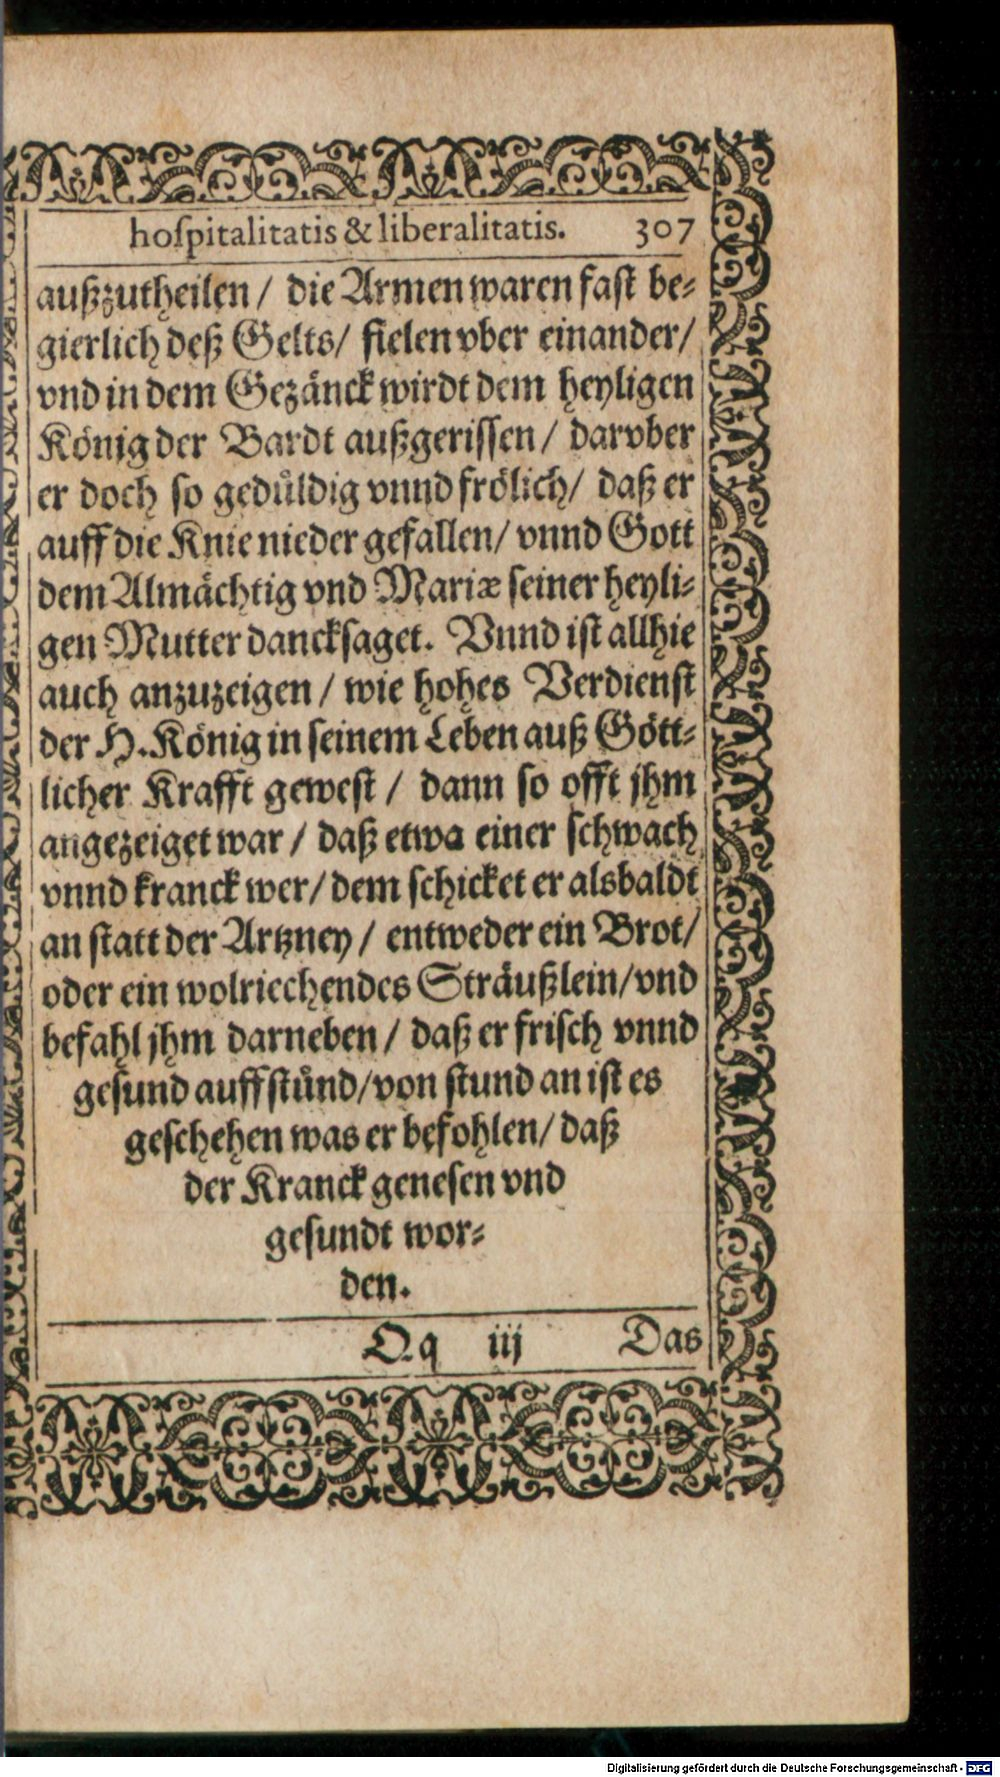 hoſpitalitatis & liberalitatis. 307
außzutheilen / die Armen waren faſt be⸗
gierlich deß Gelts / fielen vber einander /
vnd in dem Gezänck wirdt dem heyligen
König der Bardt außgeriſſen / darvber
er doch ſo gedůldig vnnd frölich / daß er
auff die Knie nieder gefallen / vnnd Gott
dem Almächtig vnd Mariæ ſeiner heyli⸗
gen Mutter danckſaget. Vnnd iſt allhie
auch anzuzeigen / wie hohes Verdienſt
der H. König in ſeinem Leben auß Gött⸗
licher Krafft geweſt / dann ſo offt jhm
angezeiget war / daß etwa einer ſchwach
vnnd kranck wer / dem ſchicket er alsbaldt
an ſtatt der Artzney / entweder ein Brot /
oder ein wolriechendes Sträußlein / vnd
befahl jhm darneben / daß er friſch vnnd
geſund auffſtůnd / von ſtund an iſt es
geſchehen was er befohlen / daß
der Kranck geneſen vnd
geſundt wor⸗
den.
Qq iij Das
Digitalisierung gefördert durch die Deutsche Forschungsgemeinschaft - DFG